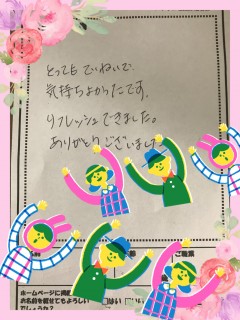 とってもていねいで、
気持ちよかったです。
リフレッシュできました。
ありがとうございました
ご職業
ホームページに掲
お名前を載せてもよろしい
でしょうか?
はい